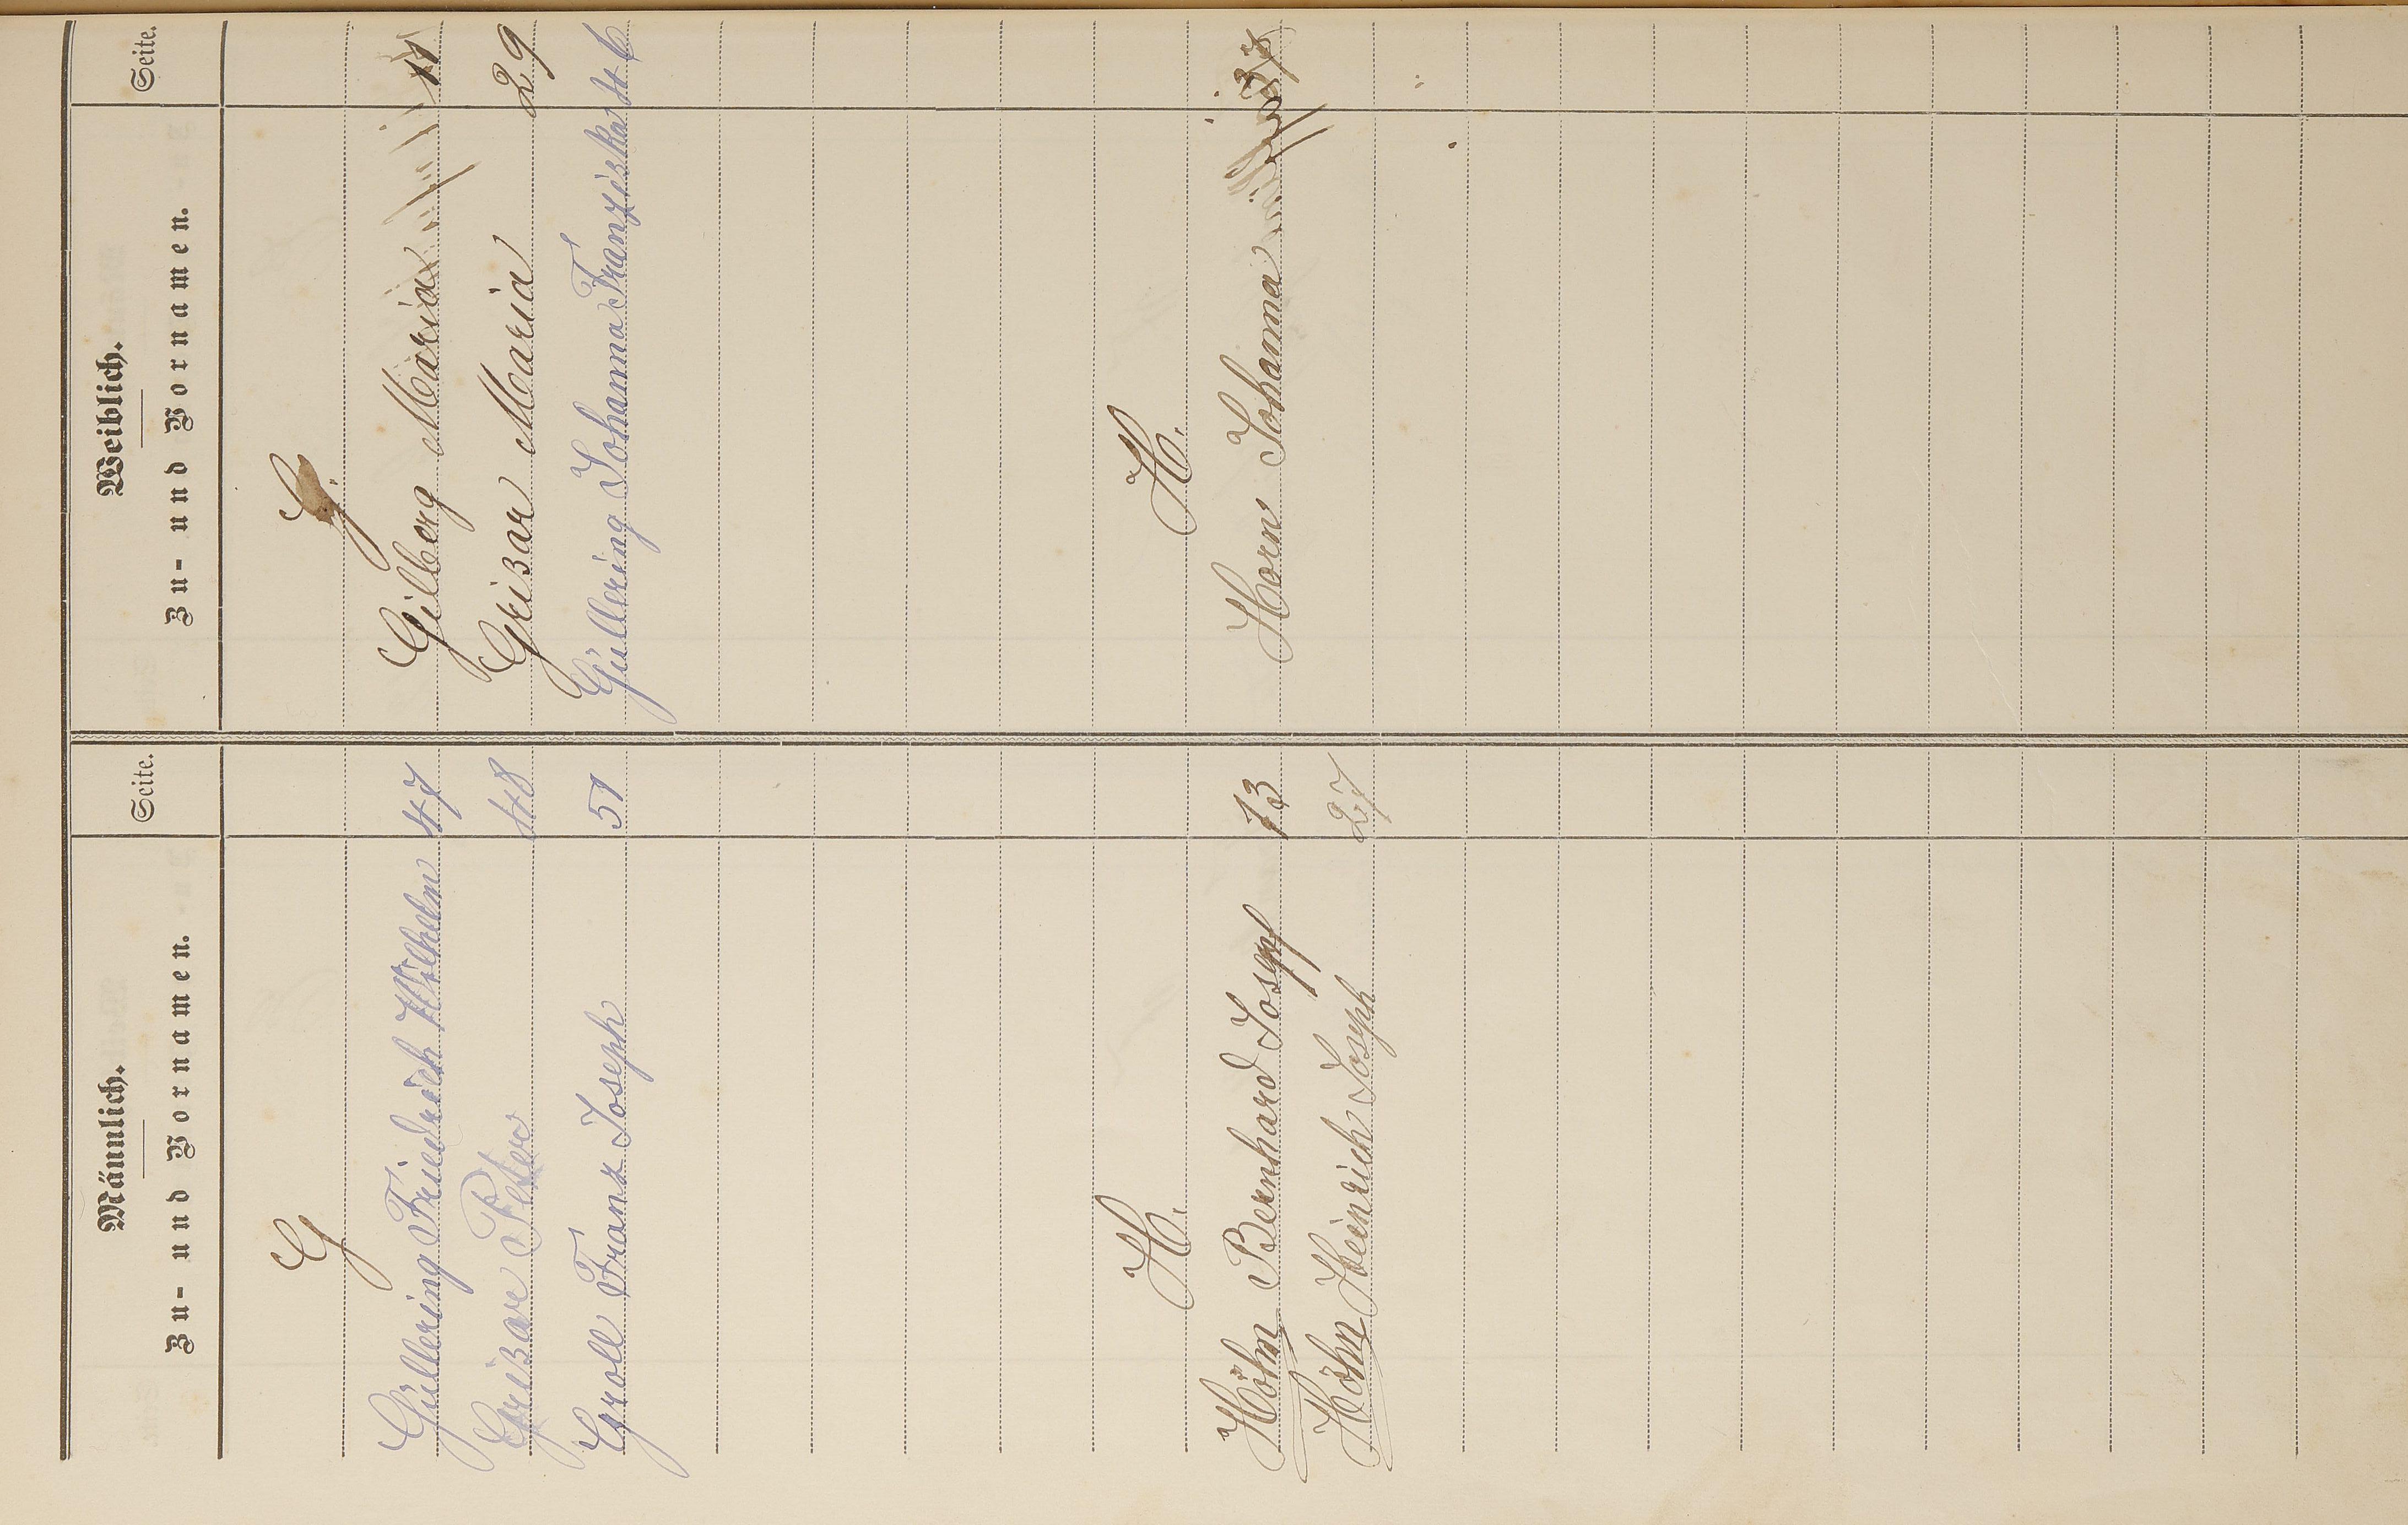 Männlich.
Zu- und Vornamen. Seite.
G
Güllering Friedrich Wilhelm 47
Grißar Peter 48
Groll Franz Joseph 51
H.
Höhn Bernhard Josepf 13
Höhn Heinrich Joseph 27
Weiblich.
Zu- und Vornamen. Seite.
G.
Gilberg Maria 11
Grißar Maria 29
Güllering Johanna Franziska 46
H.
Horn Johanna 37